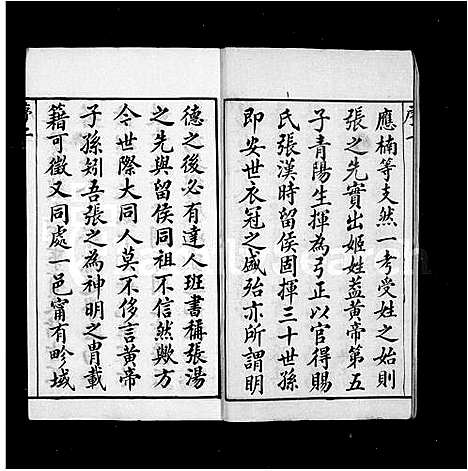 應楠等支然一考受姓之始則
張之先實出姬姓葢黃帝第五
子青陽生揮為弓正以官得賜
氏張漢時留侯固揮三十世孫
即安世衣冠之盛殆亦所謂明
德之後必有達人班書稱張湯
之先與留侯同祖不信然歟方
今世際大同人莫不侈言黃帝
子孫矧吾張之為神明之胄載
籍可徵又同處一邑甯有畛域